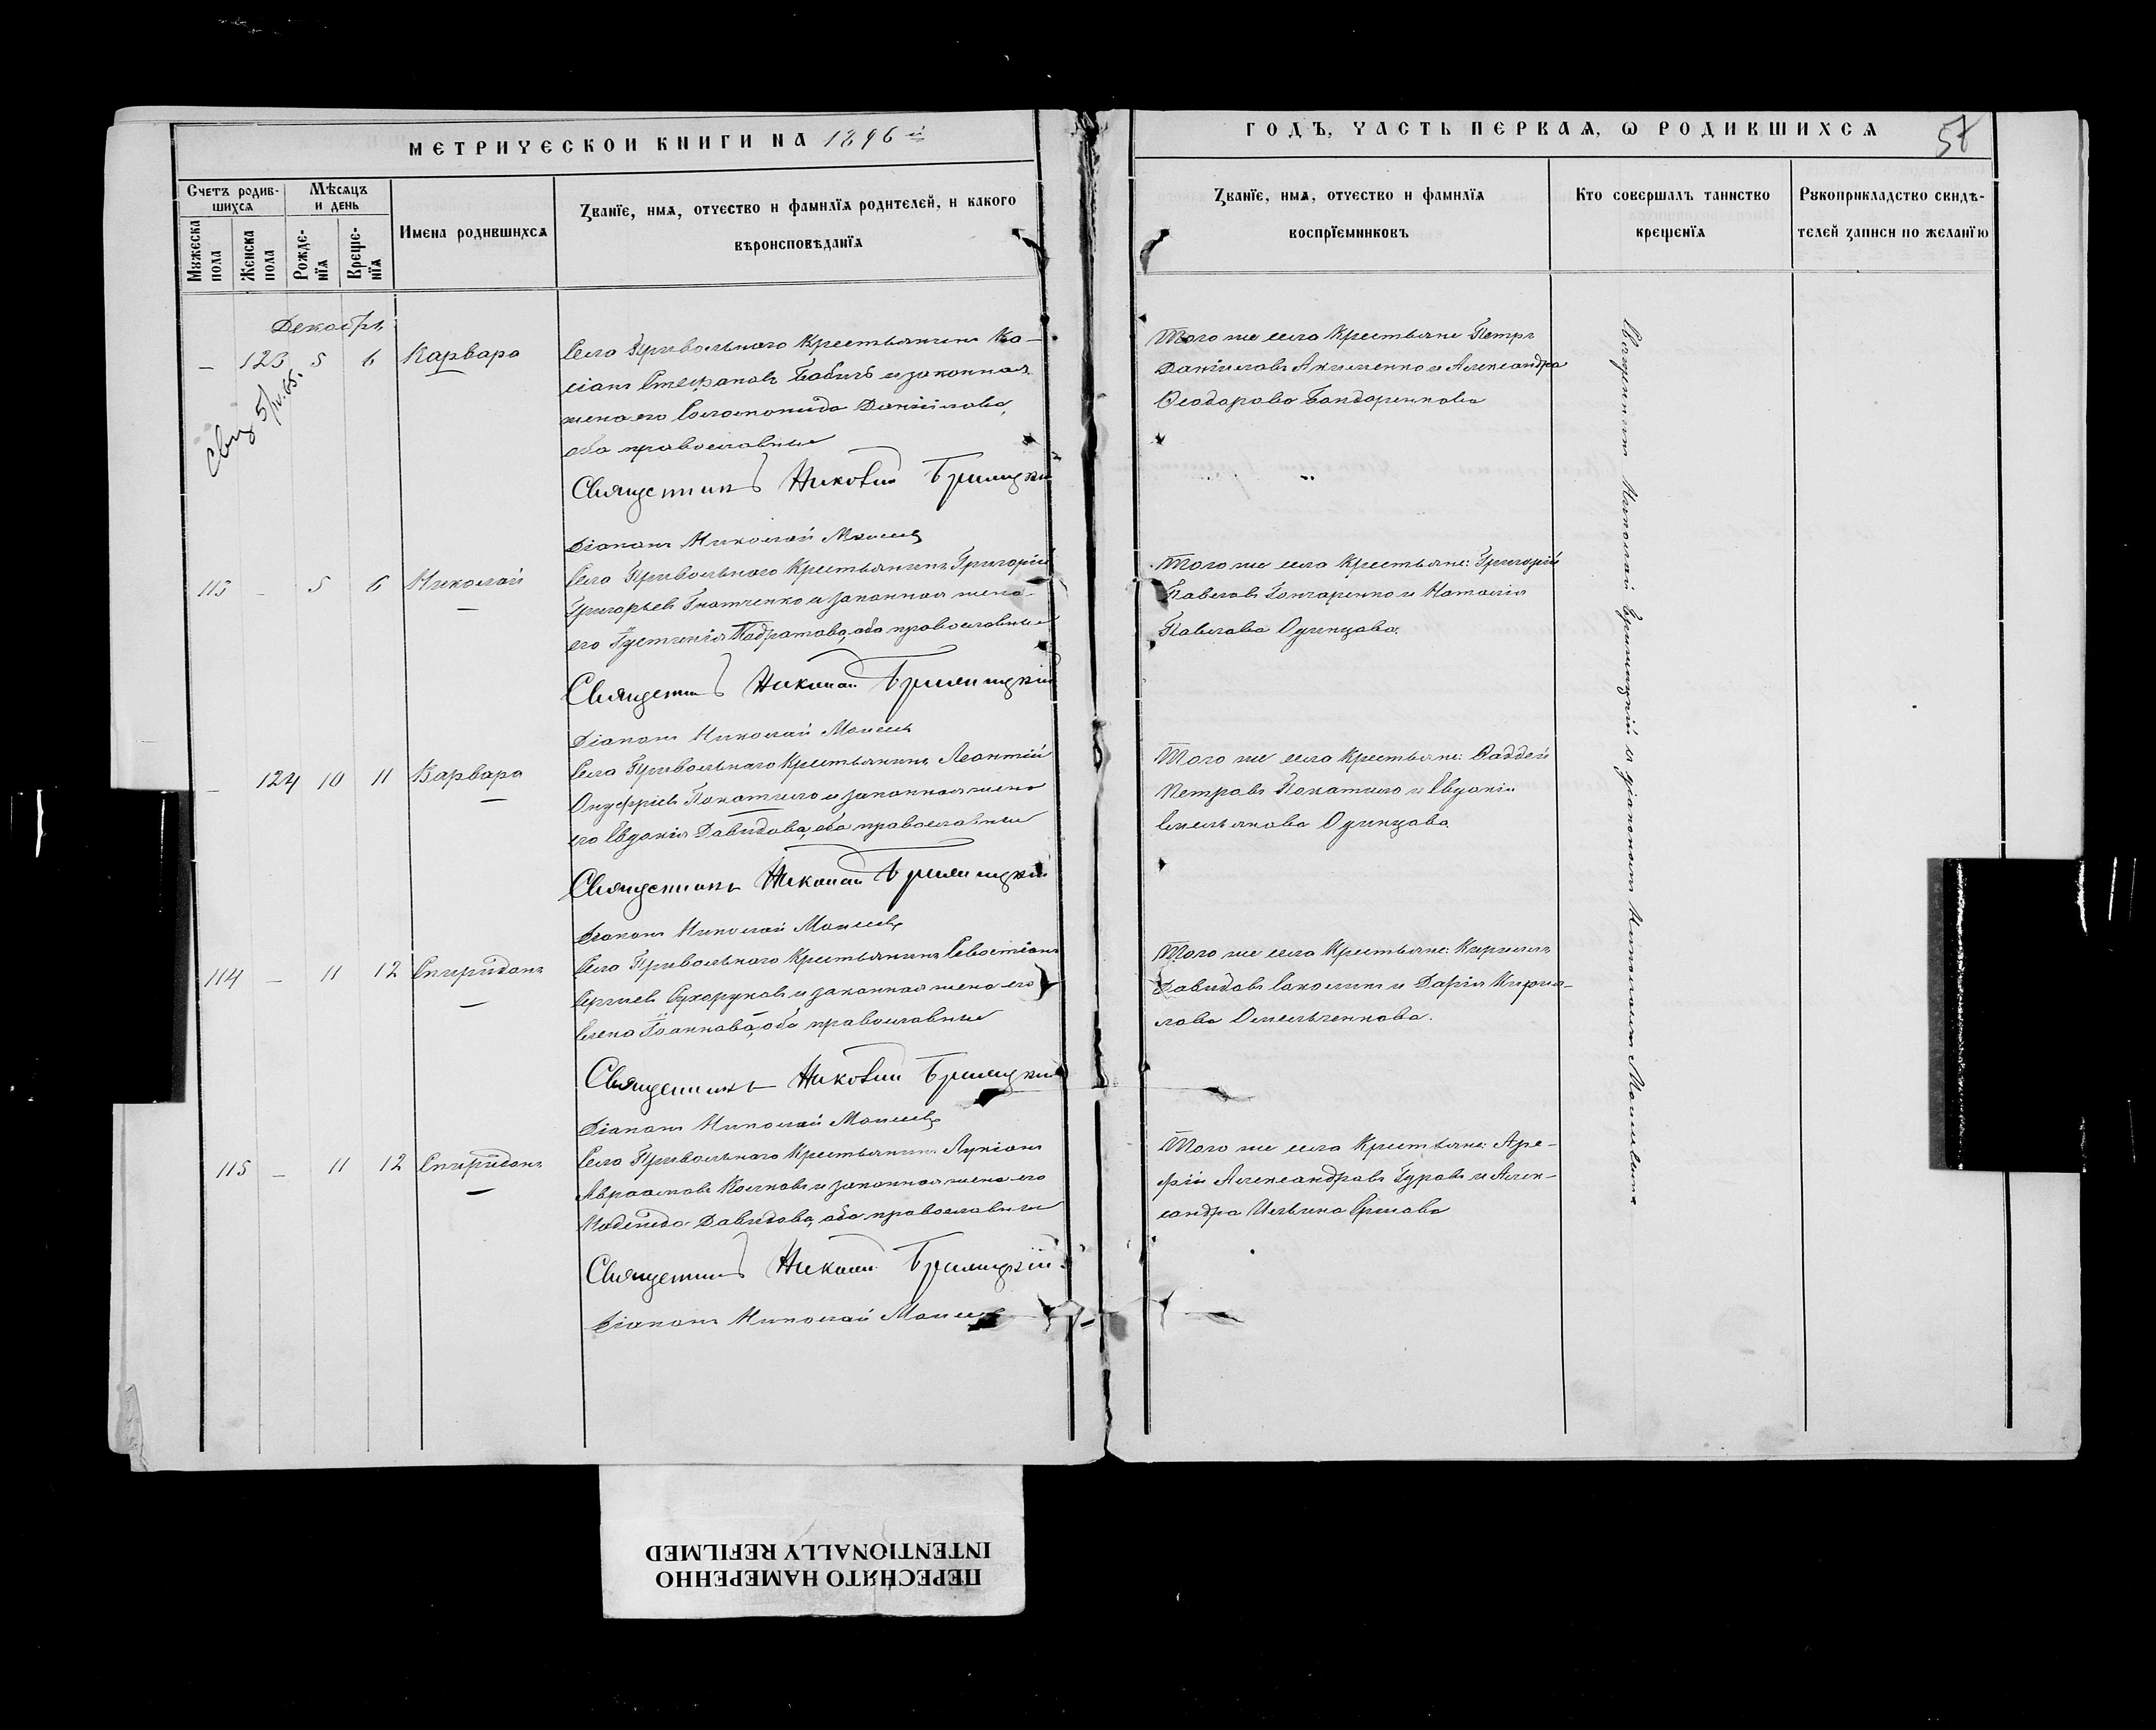 МЕТРИЧЕСКОИ КНИГИ НА 1896 й
ГОДЪ, ЧАСТЬ ПЕРВАЯ, Ѡ РОДИВШИХСЯ
57
Счетъ родив-
шихся
Мужеска
пола
Женска
пола
Мѣсяцъ
и день
Рожде-
нїя
Креще-
нїя
Имена родившихся
Званїе, имя, отчество и фамилїя родителей, и какого
вѣроисповѣданїя
Званїе, имя, отчество и фамилїя
воспрїемниковъ
Кто совершалъ таинство
крещенїя
Рукоприкладство свидѣ-
телей записи по желанїю
Декабрь
– 123 5 6 Варвара
Села Привольнаго Крестьянинъ Ка-
сіанъ Стефановъ Бабичъ и законная
жена его Соломонида Даніилова,
оба православные
Священникъ Николай
Діаконъ Николай
Того же села Крестьяне Петръ
Даніиловъ Акименко и Александра
Ѳеодорова Бондаренкова
5/IV.65.
113 – 5 6 Николай
Села Привольнаго Крестьянинъ Григорій
Григорьевъ Гнатченко и законная жена
его оба православные
Священникъ Николай
Діаконъ Николай
Того же села Крестьяне: Григорій
Павловъ Гончаренко и Наталія
Павлова Одинцова.
– 124 10 11 Варвара
Села Привольнаго Крестьянинъ Леонтій
Онуфріевъ Покатило и законная жена
его Евдокія Давидова, оба православные
Священникъ Николай
Діаконъ Николай
Того же села Крестьяне: Ѳаддей
Петровъ Покатило и Евдокія
Емельянова Одинцова.
114 – 11 12 Спиридонъ
Села Привольнаго Крестьянинъ Севастіанъ
Сергіевъ Сухоруковъ и законная жена его
Елена Іоаннова, оба православные
Священникъ Николай
Діаконъ Николай
Того же села Крестьяне: Кириллъ
Давидовъ и Дарія Кирил-
лова Омельченкова.
115 – 11 12 Спиридонъ
Села Привольнаго Крестьянинъ Лукіанъ
Авраамовъ и законная жена его
Надежда Давидова, оба православные
Священникъ Николай
Діаконъ Николай
Того же села Крестьяне: Аре-
фій Александровъ Гуровъ и Алек-
сандра Ильина
Священникъ Николай и діаконом Николаем
ПЕРЕСНЯТО НАМЕРЕННО
INTENTIONALLY REFILMED